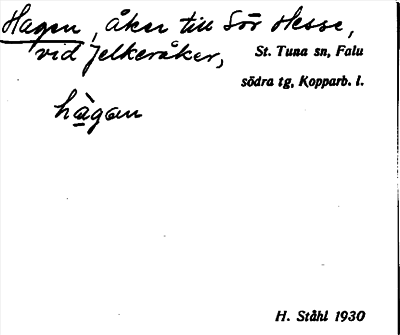 Hagen, åker till Sör Hesse,
vid Jelkeråker, St. Tuna sn, Falu
södra tg, Kopparb. l.
hàgan
H. Ståhl 1930